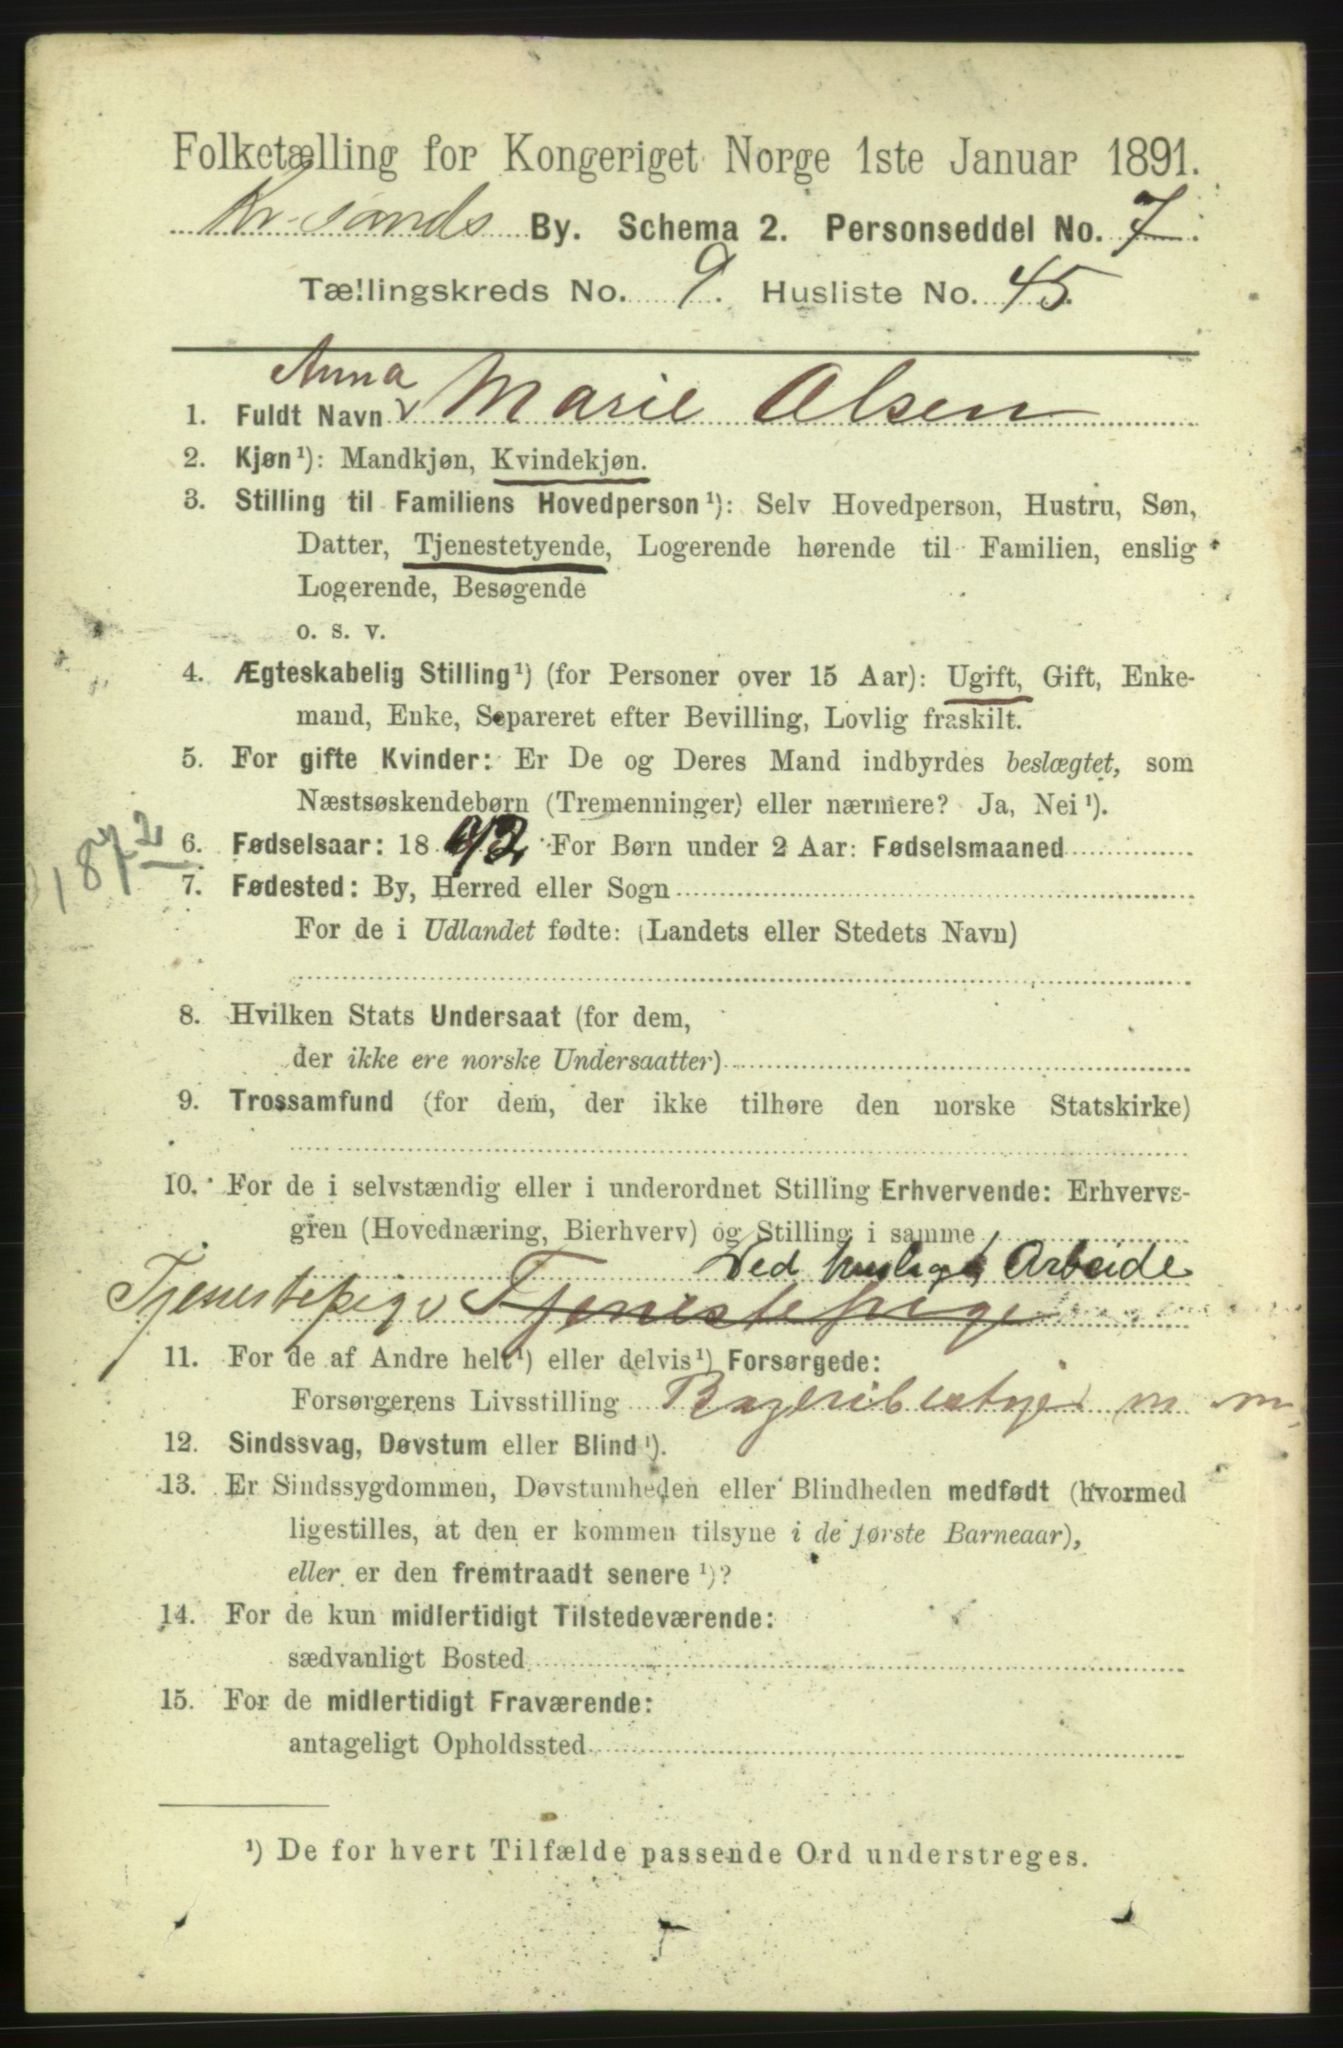 Folketælling for Kongeriget Norge 1ste Januar 1891.
Kr-sands By. Schema 2. Personseddel No. 7.
Tællingskreds No. 9. Husliste No. 45.
Anna
1. Fuldt Navn v Marie Olsen
2. Kjøn¹): Mandkjøn, Kvindekjøn.
3. Stilling til Familiens Hovedperson¹): Selv Hovedperson, Hustru, Søn,
Datter, Tjenestetyende, Logerende hørende til Familien, enslig
Logerende, Besøgende
o. s. v.
4. Ægteskabelig Stilling¹) (for Personer over 15 Aar): Ugift, Gift, Enke-
mand, Enke, Separeret efter Bevilling, Lovlig fraskilt.
5. For gifte Kvinder: Er De og Deres Mand indbyrdes beslægtet, som
Næstsøskendebørn (Tremenninger) eller nærmere? Ja, Nei¹).
1872
6. Fødselsaar: 18 For Børn under 2 Aar: Fødselsmaaned
7. Fødested: By, Herred eller Sogn
For de i Udlandet fødte: (Landets eller Stedets Navn)
8. Hvilken Stats Undersaat (for dem,
der ikke ere norske Undersaatter)
9. Trossamfund (for dem, der ikke tilhøre den norske Statskirke)
10. For de i selvstændig eller i underordnet Stilling Erhvervende: Erhvervs-
gren (Hovednæring, Bierhverv) og Stilling i samme
Ved husligt Arbeide
Tjenestepige Tjenestepige
11. For de af Andre helt¹) eller delvis¹) Forsørgede:
Forsørgerens Livsstilling m m
12. Sindssvag, Døvstum eller Blind¹).
13. Er Sindssygdommen, Døvstumheden eller Blindheden medfødt (hvormed
ligestilles, at den er kommen tilsyne i de første Barneaar),
eller er den fremtraadt senere¹)?
14. For de kun midlertidigt Tilstedeværende:
sædvanligt Bosted
15. For de midlertidigt Fraværende:
antageligt Opholdssted
¹) De for hvert Tilfælde passende Ord understreges.